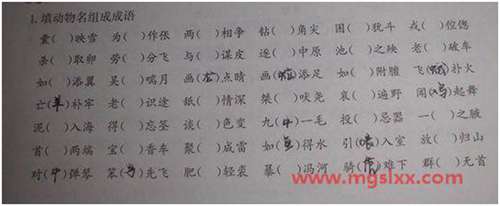 1. 填动物名组成成语
囊( )映雪 为( )作伥 两( )相争 钻( )角尖 困( )犹斗 戎( )倥偬
杀( )取卵 劳( )分飞 与( )谋皮 逐( )中原 池( )之殃 老( )破车
如( )添翼 吴( )喘月 画(龙)点睛 画(蛇)添足 如( )附膻 飞(蛾)扑火
亡(羊)补牢 老( )识途 舐( )情深 桀( )吠尧 哀( )遍野 闻( )起舞
泥( )入海 得( )忘筌 谈( )色变 九(牛)一毛 投( )忌器 一( )之腋
首( )两端 宝( )香车 聚( )成雷 如(鱼)得水 引(狼)入室 放( )归山
对(牛)弹琴 笨(鸟)先飞 肥( )轻裘 暴( )冯河 骑(虎)难下 群( )无首
www.mgslxx.com